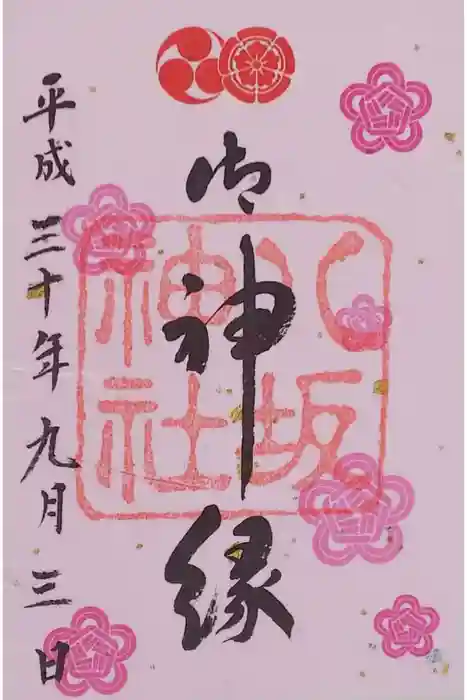 八坂
神社
御神縁
平成三十年九月三日